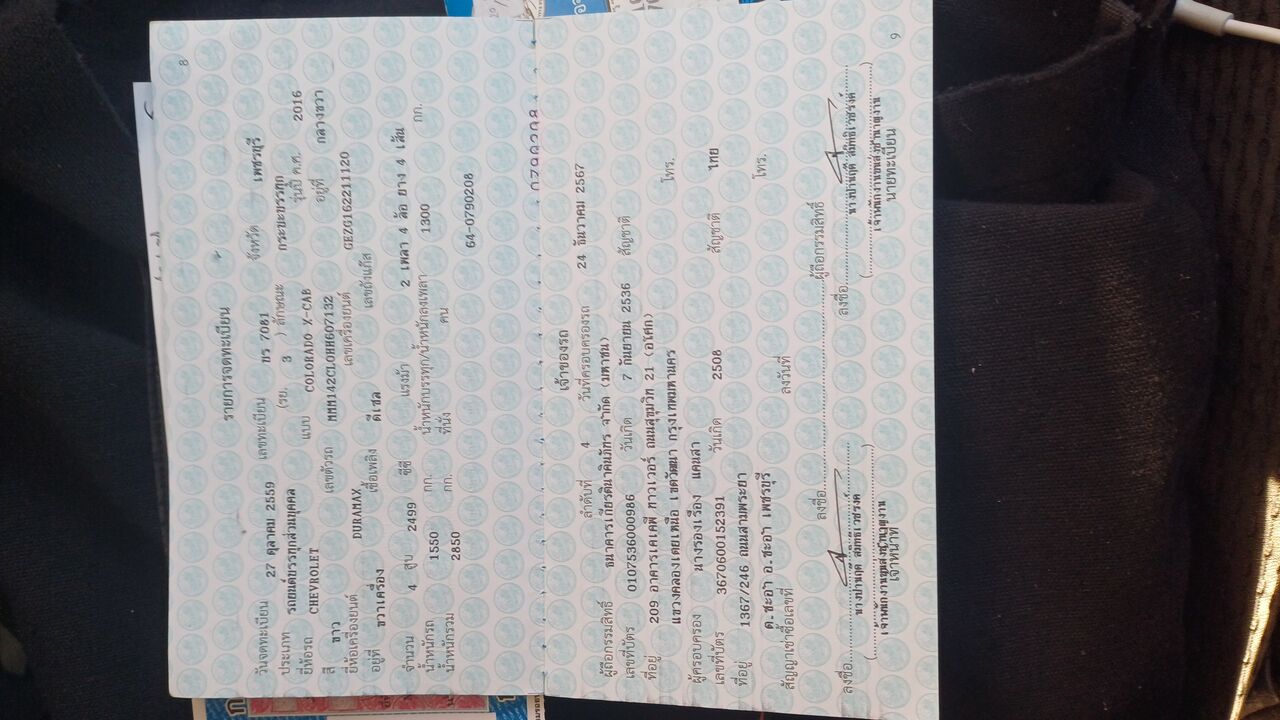 8
รายการจดทะเบียน
วันจดทะเบียน 27 ตุลาคม 2559 เลขทะเบียน 7081 จังหวัด เพชรบุรี
ประเภท รถยนต์บรรทุกส่วนบุคคล (รย. 3 ) ลักษณะ กระบะบรรทุก
ยี่ห้อรถ CHEVROLET แบบ COLORADO X-CAB รุ่นปี ค.ศ. 2016
สี ขาว เลขตัวรถ MMM142CLOHH607132 อยู่ที่ กลางขวา
ยี่ห้อเครื่องยนต์ DURAMAX เลขเครื่องยนต์ GEZG162211120
อยู่ที่ ขวาเครื่อง เชื้อเพลิง ดีเซล เลขถังแก๊ส
จำนวน 4 สูบ 2499 ซีซี แรงม้า 2 เพลา 4 ล้อ ยาง 4 เส้น
น้ำหนักรถ 1550 กก. น้ำหนักบรรทุก/น้ำหนักลงเพลา 1300 กก.
น้ำหนักรวม 2850 กก. ที่นั่ง คน
64-0790208
0790208
เจ้าของรถ
ลำดับที่ 4 วันที่ครอบครองรถ 24 ธันวาคม 2567
ผู้ถือกรรมสิทธิ์ ธนาคารเกียรตินาคินภัทร จำกัด (มหาชน)
เลขที่บัตร 0107536000986 วันเกิด 7 กันยายน 2536 สัญชาติ
ที่อยู่ 209 อาคารเคเคพี ทาวเวอร์ ถนนสุขุมวิท 21 (อโศก)
แขวงคลองเตยเหนือ เขตวัฒนา กรุงเทพมหานคร โทร.
ผู้ครอบครอง นางรองเรือง แคนสา
เลขที่บัตร 3670600152391 วันเกิด 2508 สัญชาติ ไทย
ที่อยู่ 1367/246 ถนนสามพระยา
ต.ชะอำ อ.ชะอำ เพชรบุรี โทร.
สัญญาเช่าซื้อเลขที่ ลงวันที่
ลงชื่อ ผู้ถือกรรมสิทธิ์
ลงชื่อ ลงชื่อ
เจ้าพนักงานขนส่งชำนาญงาน เจ้าพนักงานขนส่งชำนาญงาน
เจ้าหน้าที่ นายทะเบียน
9